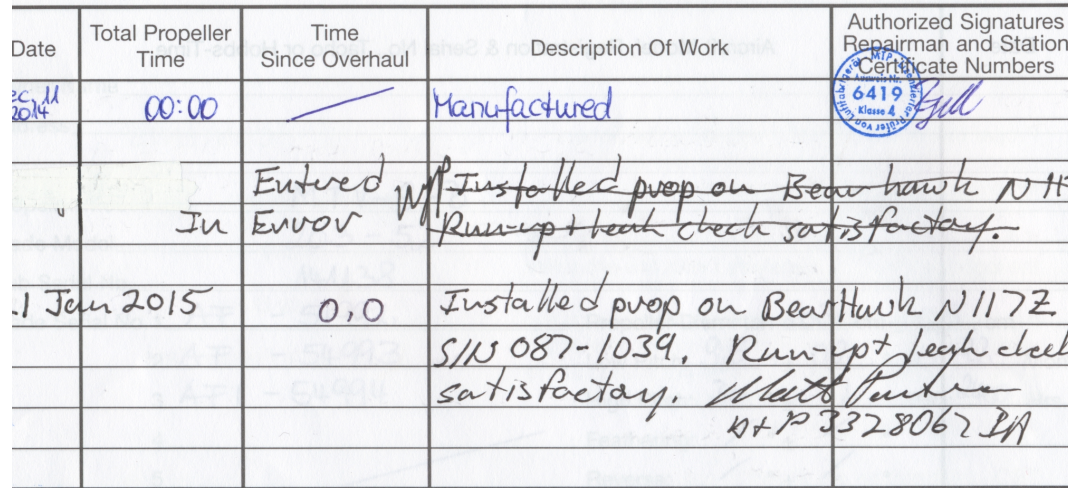 Date Total Propeller Time Time Since Overhaul Description Of Work Authorized Signatures Repairman and Station Certificate Numbers
EC 11 2014 00:00 Manufactured 6419 Klasse 4
Entered Installed prop on Bearhawk N11
" In Error Run-up + leak check satisfactory.
1 Jan 2015 0.0 Installed prop on BearHawk N117Z
S/N 087-1039. Run-up +
satisfactory. Matt
A+P 3328062 IA